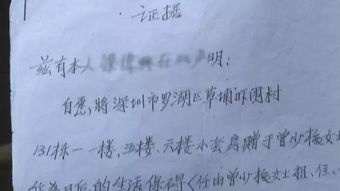 证据
兹有本人 明:
自愿,將深圳市罗湖区草埔吓围村
131栋一一楼,五楼、六楼小套房赠于曾少梅女士
后的生活保障(任由曾少梅女士租、住、